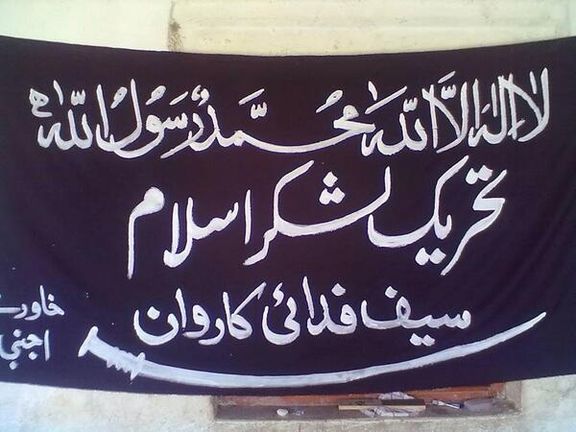 لا اله الا الله محمد رسول الله
تحریک لشکر اسلام
سیف فدائی کاروان
خاورے
اجنبی